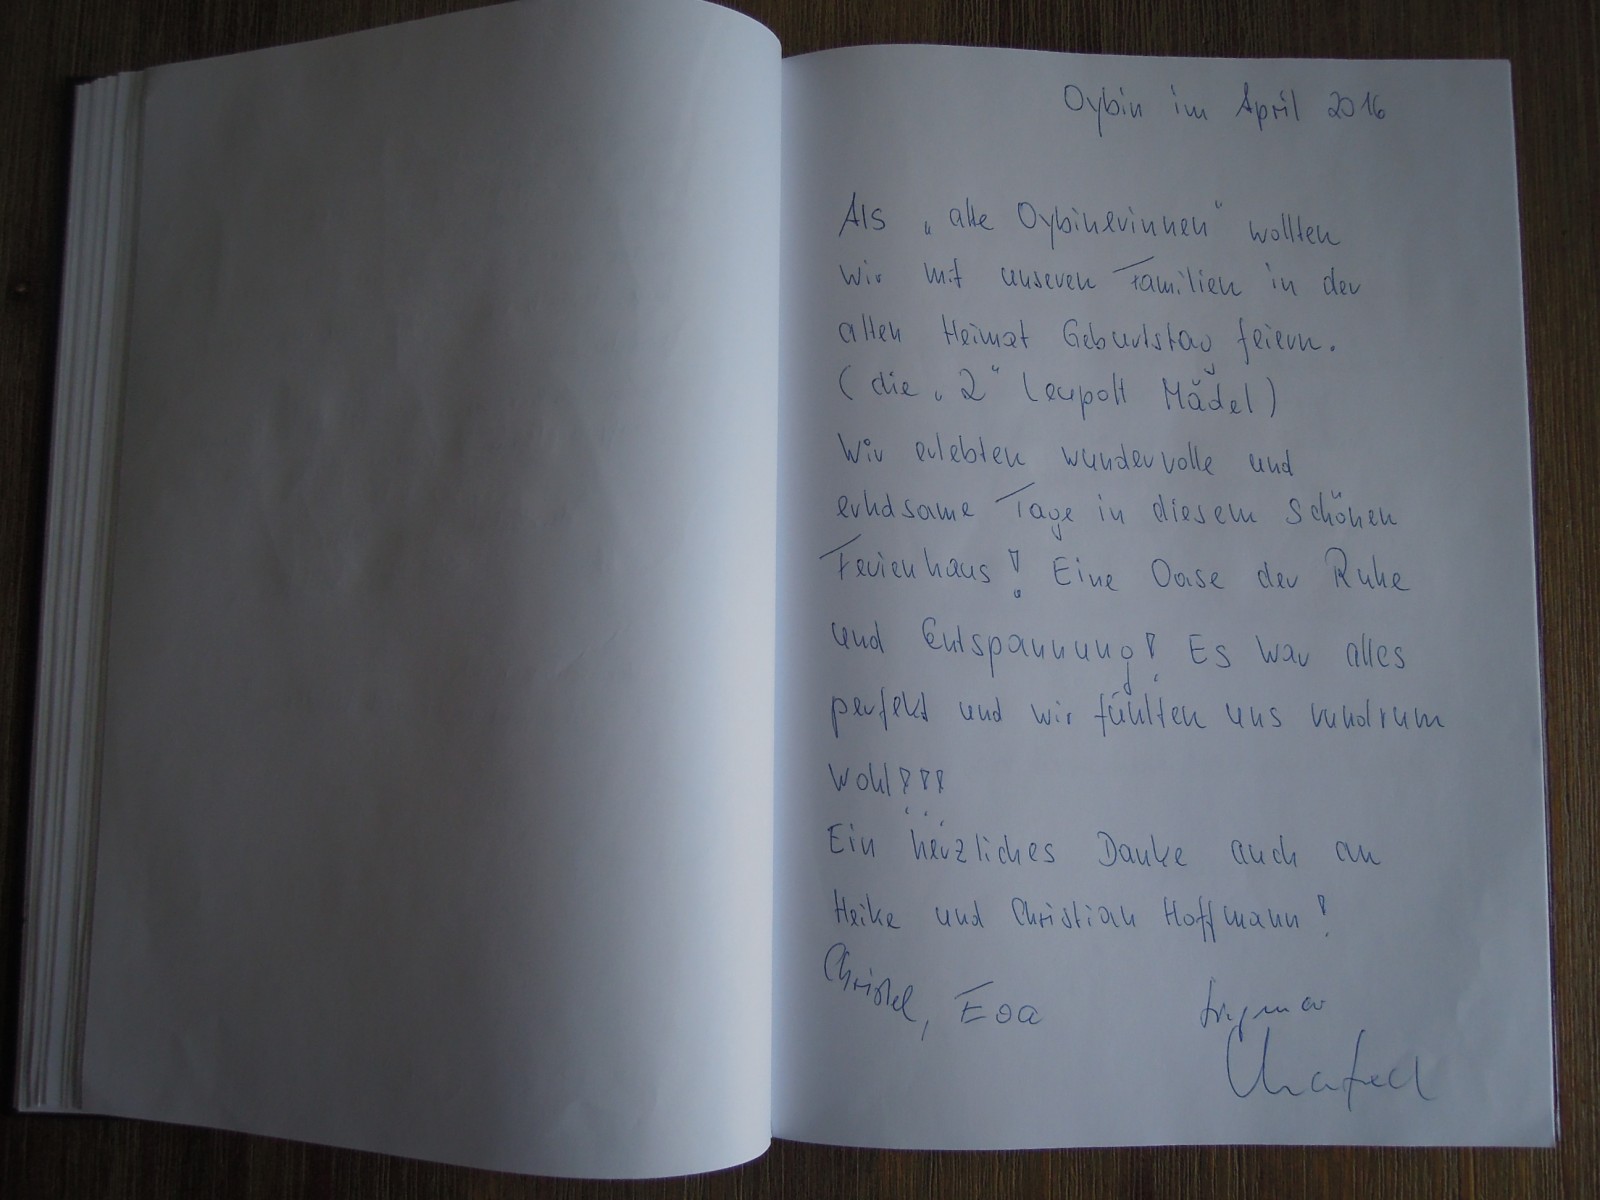 Oybin im April 2016
Als „alte Oybinerinnen" wollten
wir mit unseren Familien in der
alten Heimat Geburtstag feiern.
(die „2" Leupolt Mädel)
Wir erlebten wundervolle und
erholsame Tage in diesem schönen
Ferienhaus! Eine Oase der Ruhe
und Entspannung! Es war alles
perfekt und wir fühlten uns rundrum
wohl!!!
Ein herzliches Danke auch an
Heike und Christian Hoffmann!
Christel, Eva